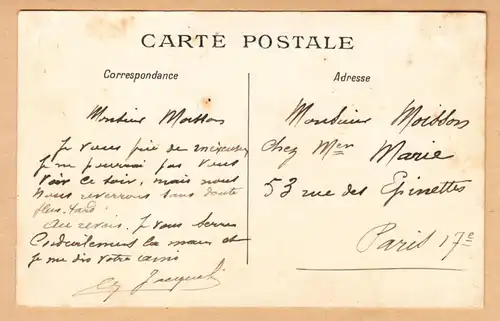 CARTE POSTALE
Correspondance
Monsieur Moisson
Je vous prie de m'excuser
je ne pourrai pas vous
voir ce soir, mais nous
nous reverrons sans doute
plus tard
au revoir. Je vous serre
Cordialement la main et
je me dis votre ami
Jacquet
Adresse
Monsieur Moisson
chez Mer Marie
53 rue des Epinettes
Paris 17e